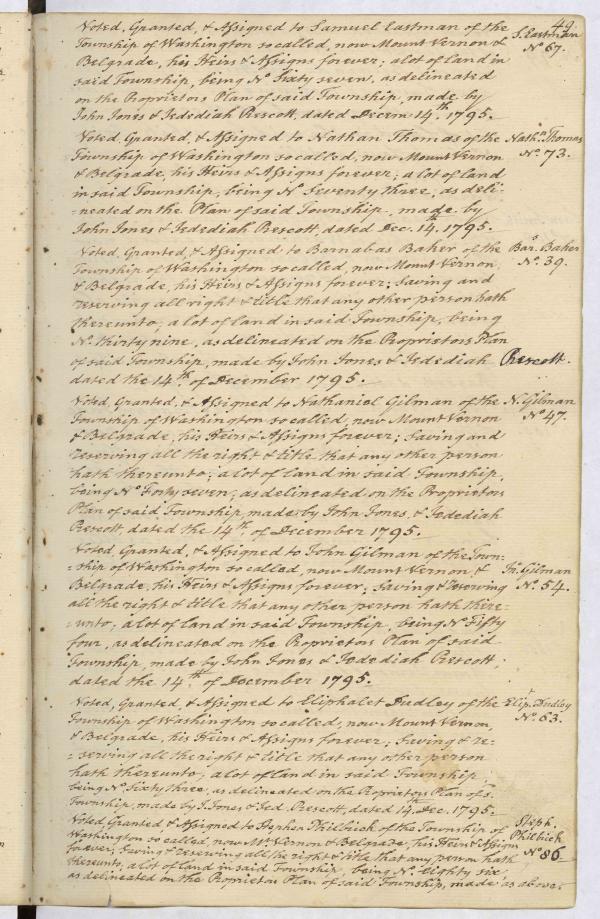 49.
Voted, Granted, & Assigned to Samuel Eastman of the S. Eastman
Township of Washington so called, now Mount Vernon & No 67.
Belgrade, his Heirs & Assigns forever; a lot of land in
said Township, being No Sixty seven, as delineated
on the Proprietors Plan of said Township, made by
John Jones & Jedediah Prescott, dated Decem 14.th 1795.
Voted, Granted, & Assigned to Nathan Thomas of the Nathn. Thomas
Township of Washington so called, now Mount Vernon No. 73.
& Belgrade, his Heirs & Assigns forever; a lot of land
in said Township, being No Seventy three, as deli-
-neated on the Plan of said Township, made by
John Jones & Jedediah Prescott, dated Dec. 14.th 1795.
Voted, Granted, & Assigned to Barnabas Baker of the Bar. Baker
Township of Washington so called, now Mount Vernon, No. 39.
& Belgrade, his Heirs & Assigns forever; Saving and
reserving all right & title that any other person hath
thereunto; a lot of land in said Township, being
No. thirty nine, as delineated on the Proprietors Plan
of said Township, made by John Jones & Jedediah Prescott.
dated the 14.th of December 1795.
Voted, Granted, & Assigned to Nathaniel Gilman of the N. Gilman
Township of Washington so called, now Mount Vernon No 47.
& Belgrade, his Heirs & Assigns forever; Saving and
reserving all the right & title that any other person
hath thereunto; a lot of land in said Township,
being No Forty seven; as delineated on the Proprietors
Plan of said Township, made by John Jones, & Jedediah
Prescott, dated the 14th. of December 1795.
Voted, Granted, & Assigned to John Gilman of the Town-
-ship of Washington so called, now Mount Vernon, & Jn. Gilman
Belgrade, his Heirs & Assigns forever; Saving & reserving No. 54.
all the right & title that any other person hath there-
-unto; a lot of land in said Township, being No Fifty
four, as delineated on the Proprietors Plan of said
Township, made by John Jones & Jedediah Prescott;
dated the 14th of December 1795.
Voted, Granted, & Assigned to Eliphalet Dudley of the Elipt. Dudley
Township of Washington so called, now Mount Vernon, No. 63.
& Belgrade, his Heirs & Assigns forever; Saving & re-
-serving all the right & title that any other person
hath thereunto; a lot of land in said Township,
being No. Sixty three, as delineated on the Proprietors Plan of s.
Township, made by J. Jones & Jed. Prescott, dated 14.th Dec. 1795.
Voted, Granted & Assigned to Stephen Philbick of the Township of Steph. Philbick
Washington so called, now Mt. Vernon & Belgrade, his Heirs & Assigns No 86.
forever; Saving & reserving all the right & title that any person hath
thereunto, a lot of land in said Township, being No. Eighty six,
as delineated on the Proprietors Plan of said Township, made as above.